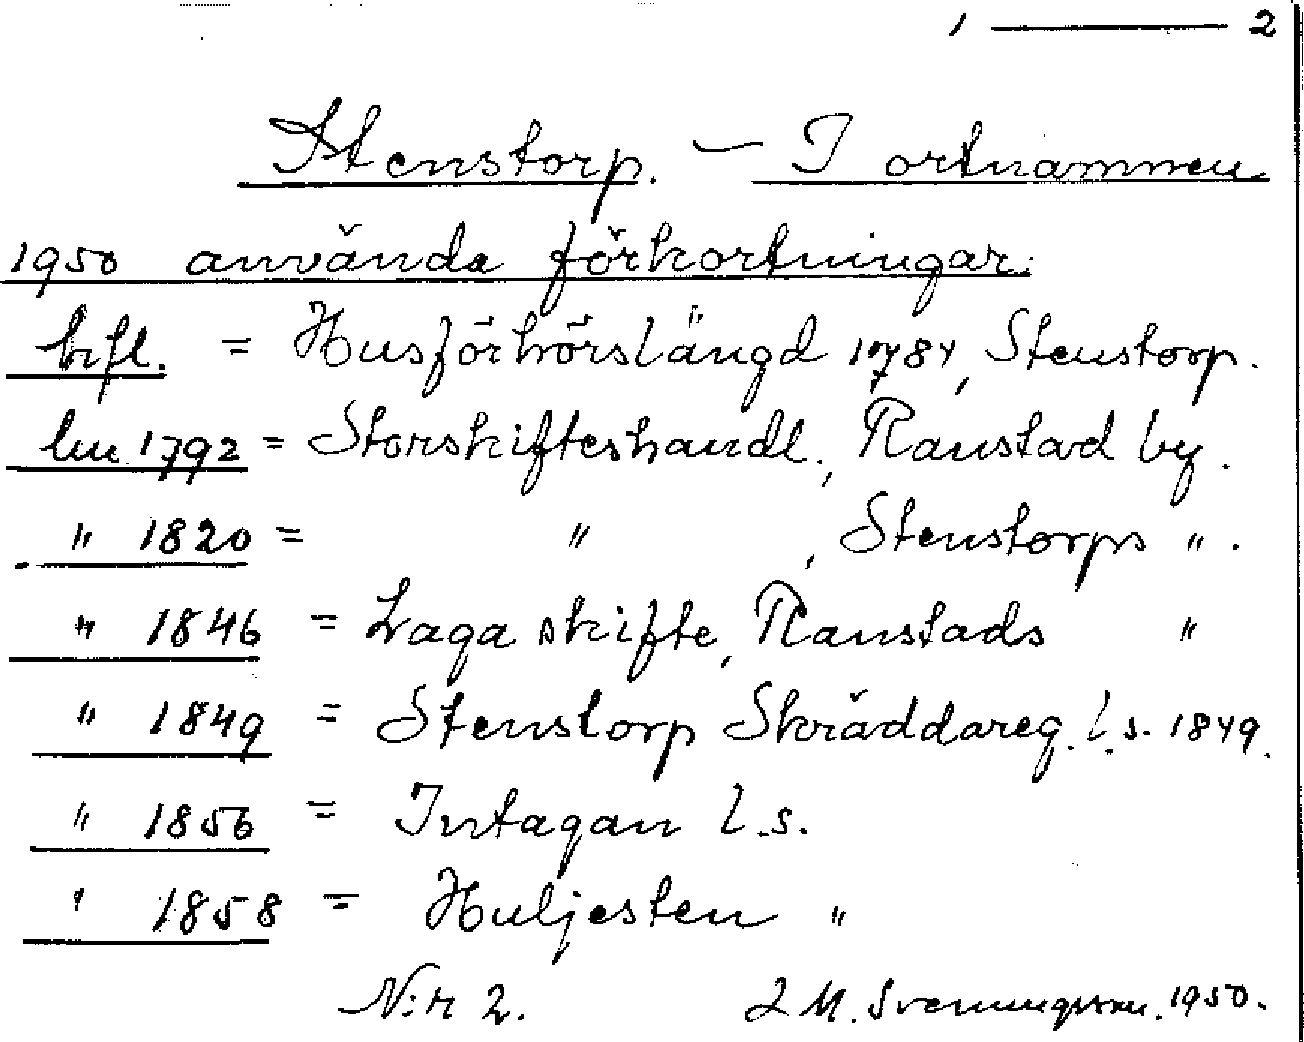 1 — 2
Stenstorp. — I ortnamnen
1950 använda förkortningar:
hfl. = Husförhörslängd 1784, Stenstorp.
lm 1792 = Storskifteshandl., Ranstad by.
" 1820 = " , Stenstorps " .
" 1846 = Laga skifte, Ranstads "
" 1849 = Stenstorp Skräddareg. l.s. 1849.
" 1856 = Intagan l.s.
" 1858 = Huljesten "
N:r 2. I M. Svenningsson. 1950.